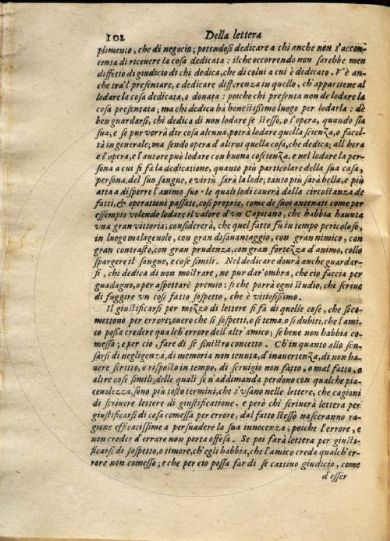 102 Della lettera
plimento, che di negocio; potendosi dedicare a chi anche non s'accon-
tenta di ricevere la cosa dedicata: ilche occorrendo non sarebbe men
diffetto di giudicio di chi dedica, che di colui a cui è dedicato. V'è an-
che tra'l presentare, e dedicare differenza in quello, ch'appartiene al
lodare la cosa dedicata, o donata: poiche chi presenta non de lodare la
cosa presentata; ma chi dedica ha bonissimo luogo per lodarla: dè
ben guardarsi, chi dedica di non lodare se stesso, o l'opera, quando sia
sua; e se pur vorrà dir cosa alcuna, potrà lodare quella scienza, o facol-
tà in generale; ma sendo opera d'altrui quella cosa, che dedica; all'hora
e l'opera, e l'autore può lodare con buona coscienza. e nel lodare la per-
sona a cui si fa la dedicatione, quanto più particolare della sua casa,
persona, del suo sangue, e virtù sarà la lode, tanto piu sarà bella, e più
atta a disporre l'animo suo: le quai lodi caverà dalla circostanza de'
fatti, & operationi passate, così proprie, come de' suoi antenati come per
essempio volendo lodare il valore d'un Capitano, che habbia havuta
una gran vittoria; considererà, che quel fatto fu in tempo pericoloso,
in luogo malagevole, con gran disavantaggio, con gran nimico, con
gran contrasto, con gran prudenza, con gran fortezza d'animo, collo
spargere il sangue, e cose simili. Nel dedicare dourà anche guardar-
si, chi dedica di non mostrare, ne pur dar'ombra, che ciò faccia per
guadagno, o per aspettare premio: si che porrà ogni studio, chi scrive
di fuggire un così fatto sospetto, che è vitiosissimo.
Il giustificarsi per mezzo di lettere si fa di quelle cose, che si co-
mettono per errore; overo che si sospetti, o si tema, o si dubiti, che l'ami-
co possa credere qualch'errore dell'altr'amico; se bene non habbia co-
messo; e per ciò, far di se sinistro concetto. Ch'in quanto allo scu-
sarsi di negligenza, di memoria non tenuta, d'inavertenza, di non ha-
vere scritto, o risposto in tempo, di servigio non fatto, o mal fatto, o
altre cose simili; delle quali se n'addimanda perdono con qualche pia-
cevolezza, sono più tosto termini, che s'usano nelle lettere, che cagioni
di scrivere lettere di giustificatione. e però chi scriverà lettera per
giustificarsi di cosa comessa per errore, dal fatto stesso nasceranno ra-
gione efficacissime a persuadere la sua innocenza; poiche l'errore, e
non creder d'errare non porta offesa. Se poi farà lettera per giusti-
ficarsi di sospetto, o timore, ch'egli habbia, che l'amico creda qualch'er-
rore non comesso; e che per ciò possa far di se cattivo giudicio, come
d'esser